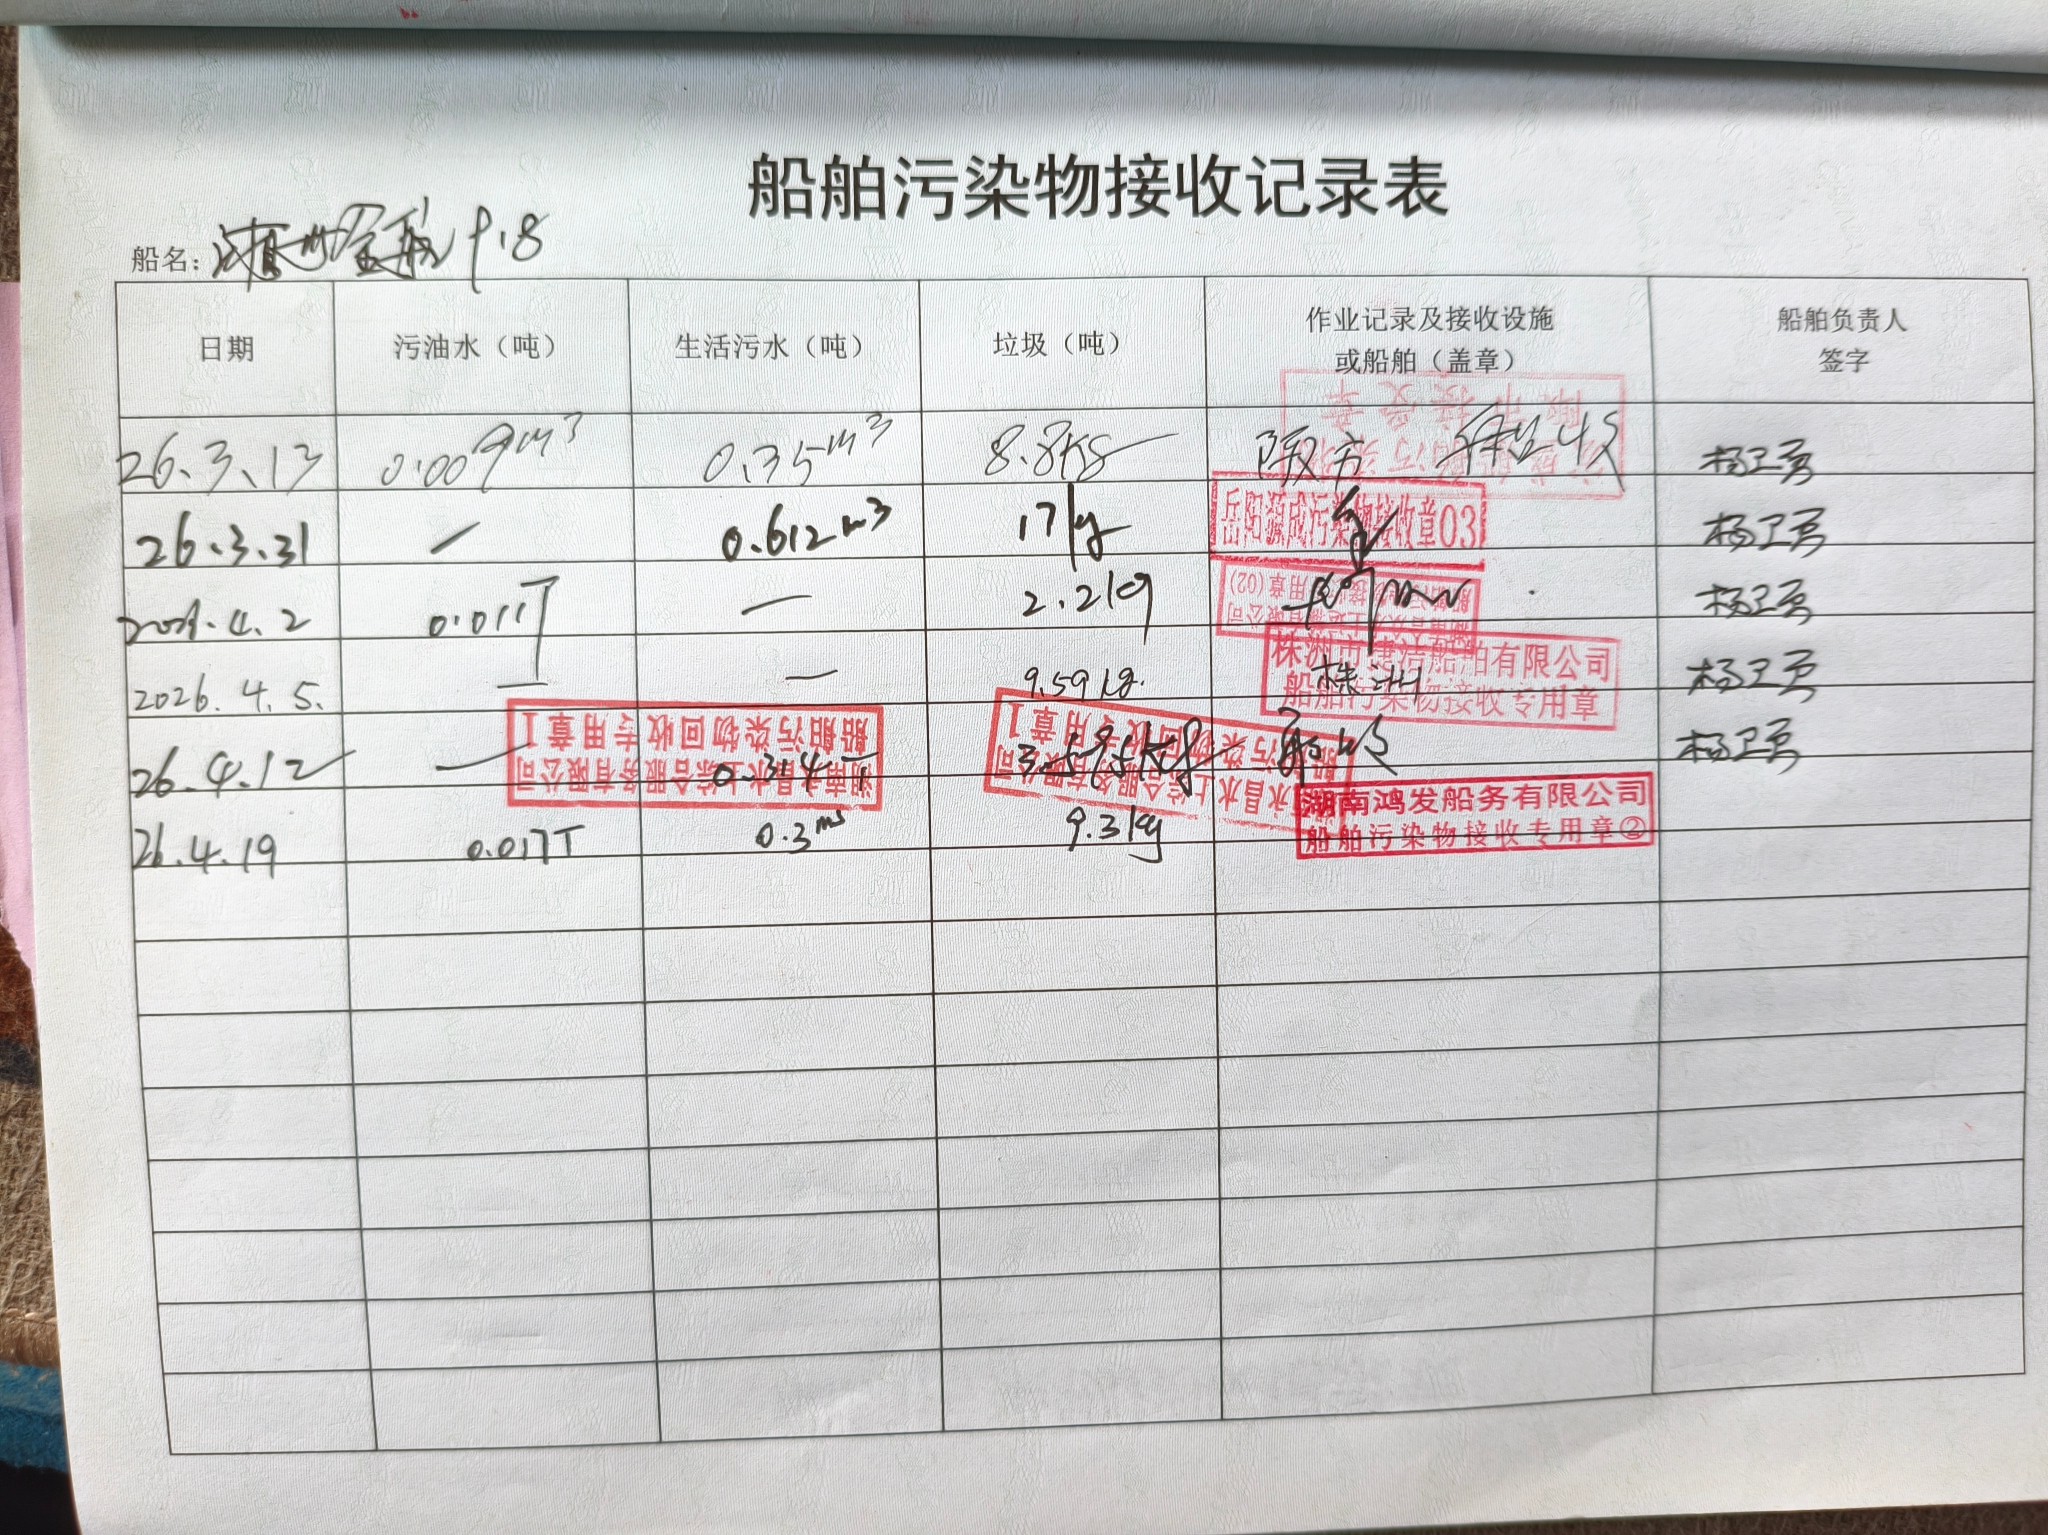 船舶污染物接收记录表
船名: 9.8
日期 污油水（吨） 生活污水（吨） 垃圾（吨） 作业记录及接收设施或船舶（盖章） 船舶负责人签字
26.3.13 0.009m³ 0.35m³ 8.8KG 杨卫勇
26.3.31 — 0.612m3 17kg 岳阳源成污染物接收章03 杨卫勇
4.2 0.011T — 2.2kg 杨卫勇
2026.4.5. — — 9.59kg. 株洲 株洲市 船舶有限公司 船舶污染物接收专用章 杨卫勇
26.4.12 — 0.314T 3.595KG 杨卫勇
湖南永昌水上综合服务有限公司
船舶污染物回收专用章1
永昌水上综合服务有限公司
26.4.19 0.017T 0.3m³ 9.3kg 湖南鸿发船务有限公司
船舶污染物接收专用章②